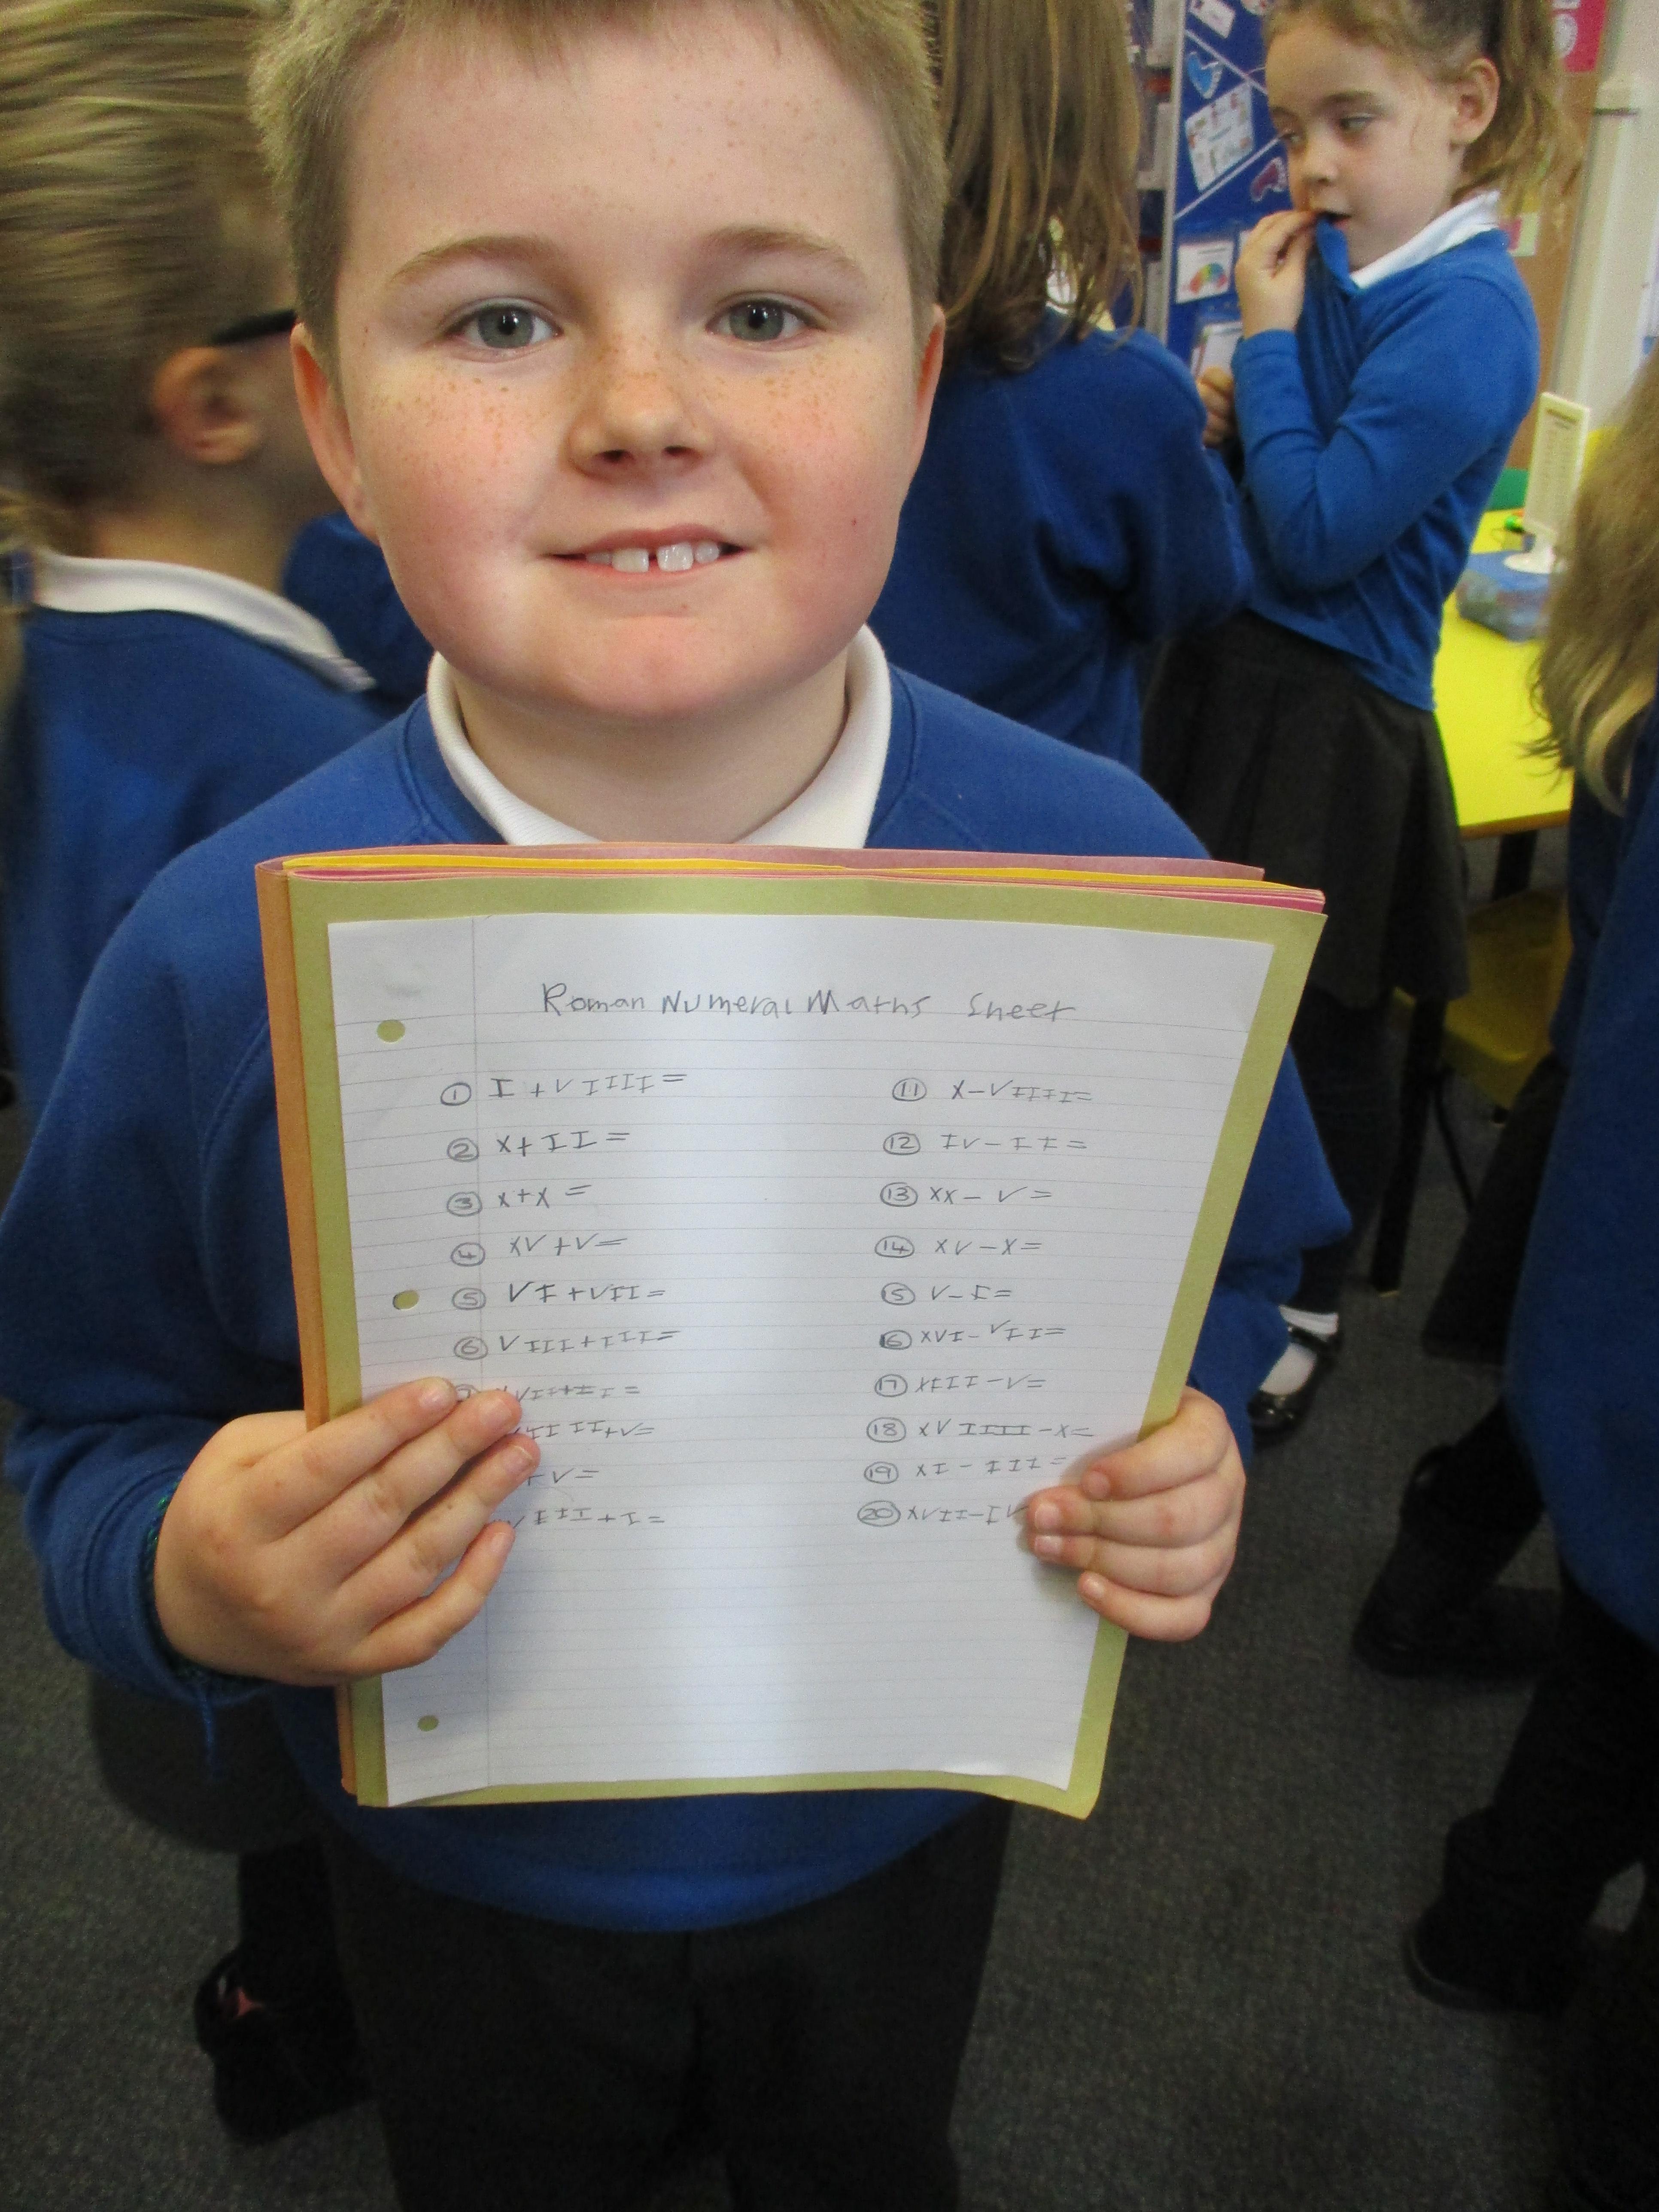 Roman Numeral Maths Sheet
1 I + VIIII =
2 X + II =
3 X + X =
4 XV + V =
5 VI + VII =
6 VIII + III =
+ V =
11 X - VIIII =
12 IV - II =
13 XX - V =
14 XV - X =
15 V - I =
16 XVI - VII =
17 XIII - V =
18 XVIIII - X =
19 XI - III =
20 XVII - IV